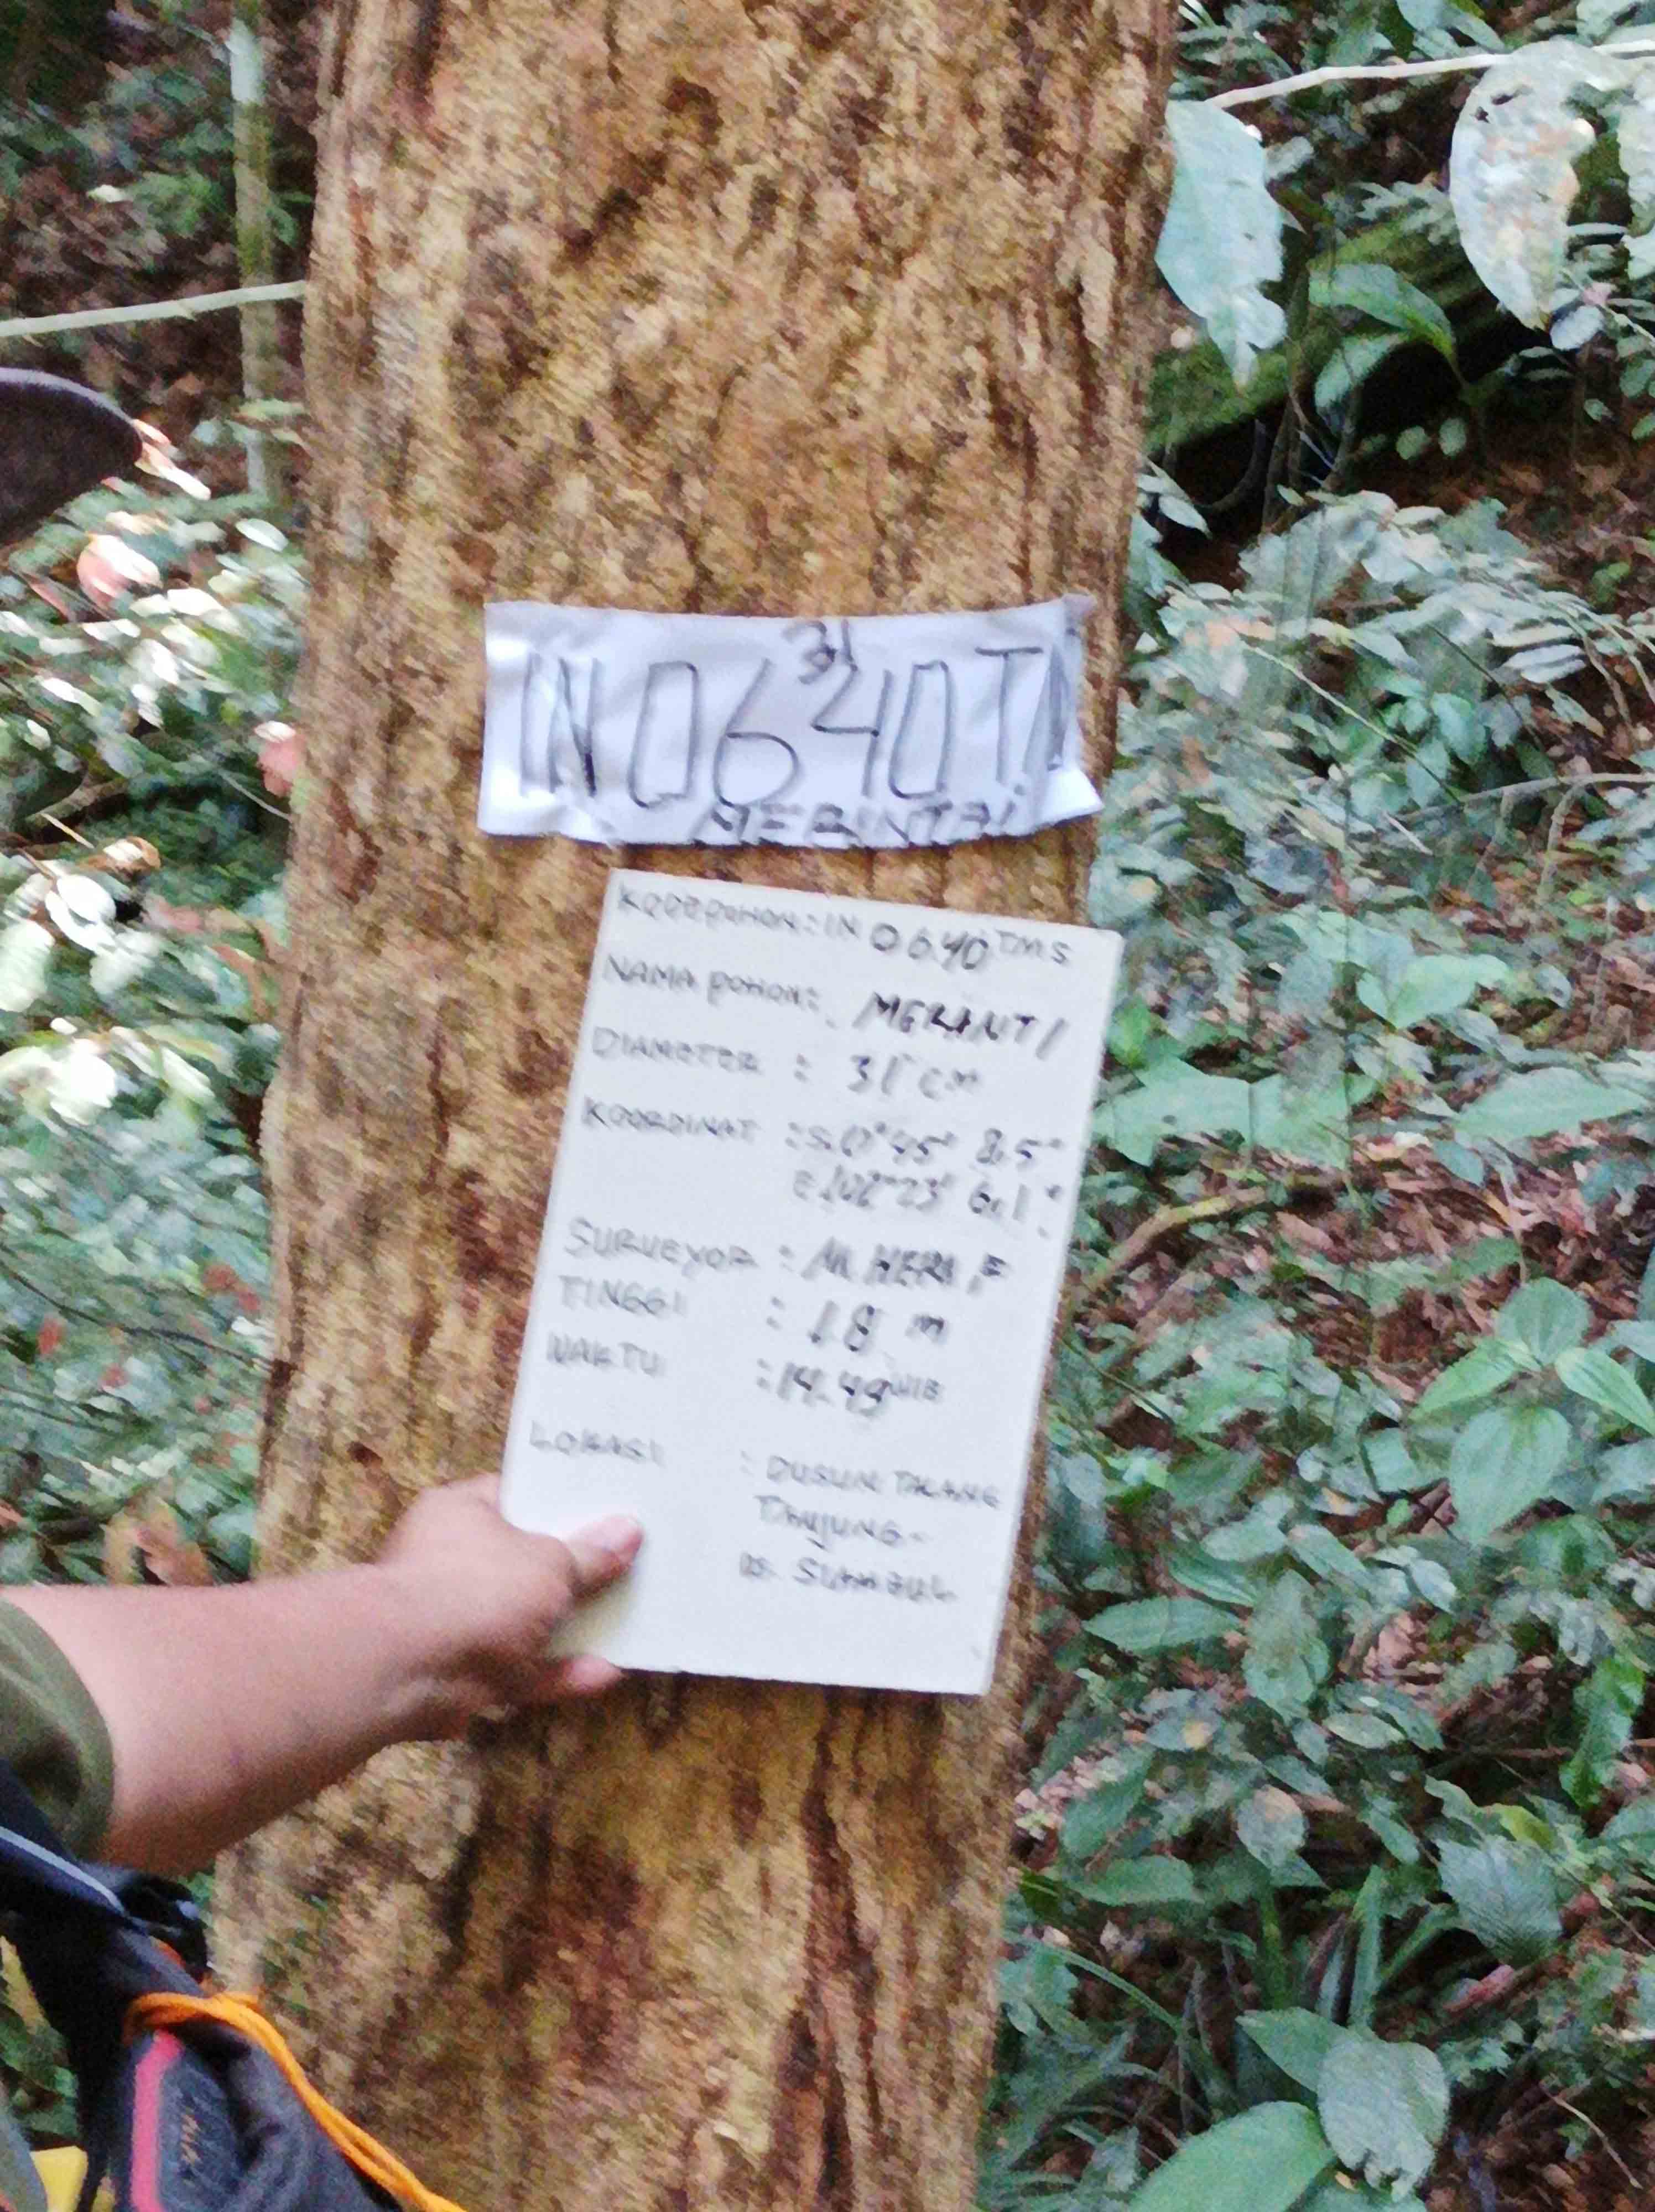 31
IN 0640 T
MERINTAI
KODE POHON : IN 0640 TMS
NAMA POHON : MERANTI
DIAMETER : 31 cm
KOORDINAT : S.0° 45' 8.5"
E 102° 23' 6.1"
SURVEYOR : M. HERI F
TINGGI : 18 m
WAKTU : 14.49 WIB
LOKASI : DUSUN TALANG
TANJUNG -
DS. SUNGAI